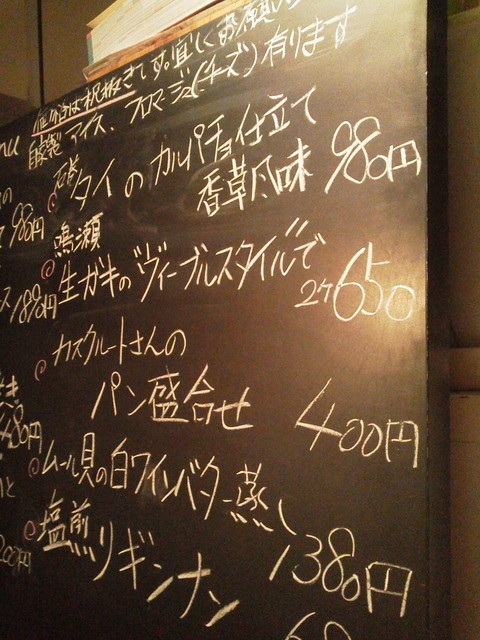 価格は税抜きです。宜しくお願い
自家製 アイス、フロマージュ(チーズ)有ります
タイのカルパチョ仕立て
香草風味 980円
鳴瀬
生ガキの"ヴィーブルスタイル"で
2ケ650
カスクルートさんの
パン盛合せ 400円
ムール貝の白ワインバター蒸し
1380円
塩煎リギンナン
980円
1890円
480円